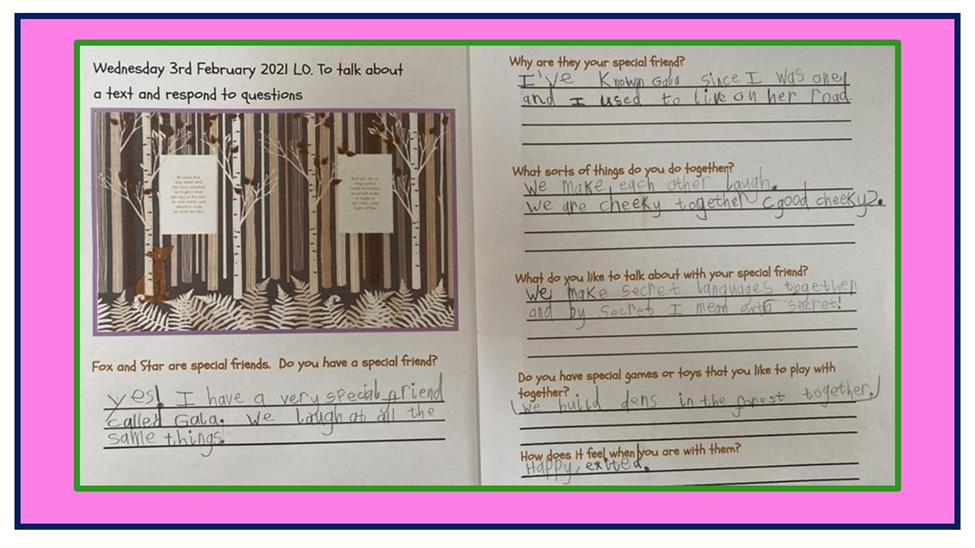 Wednesday 3rd February 2021 LO. To talk about
a text and respond to questions
Fox and Star are special friends. Do you have a special friend?
yes! I have a very special friend
called Gala. We laugh at all the
same things.
Why are they your special friend?
I've Known Gala since I was one!
and I used to live on her road.
What sorts of things do you do together?
We make each other laugh.
We are cheeky together (good cheeky).
What do you like to talk about with your special friend?
We make secret languages together
and by secret I mean extra secret!
Do you have special games or toys that you like to play with
together?
we build dens in the forest together!
How does it feel when you are with them?
Happy, exited.